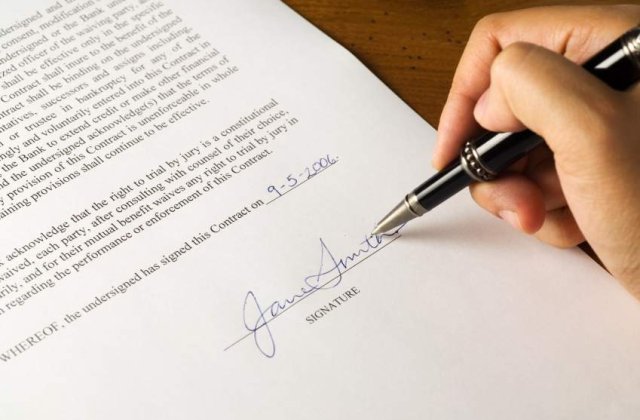 undersigned and
consent, modification
undersigned or the Bank
ized officer of the waiving party, and
shall be effective only in the specific
Contract shall inure to the benefit of the
ract shall be binding on the undersigned
ntatives, successors and assigns including,
or trustee in bankruptcy for any of the
ngly and voluntarily entered into this Contract in
the Bank to extend credit or make other financial
d the undersigned acknowledge(s) that the terms of
y provision of this Contract is unenforceable in whole
aining provisions shall continue to be effective.
acknowledge that the right to trial by jury is a constitutional
waived, each party, after consulting with counsel of their choice,
arily, and for their mutual benefit waives any right to trial by jury in
n regarding the performance or enforcement of this Contract.
WHEREOF, the undersigned has signed this Contract on 9-5-2006.
Jane Smith
SIGNATURE